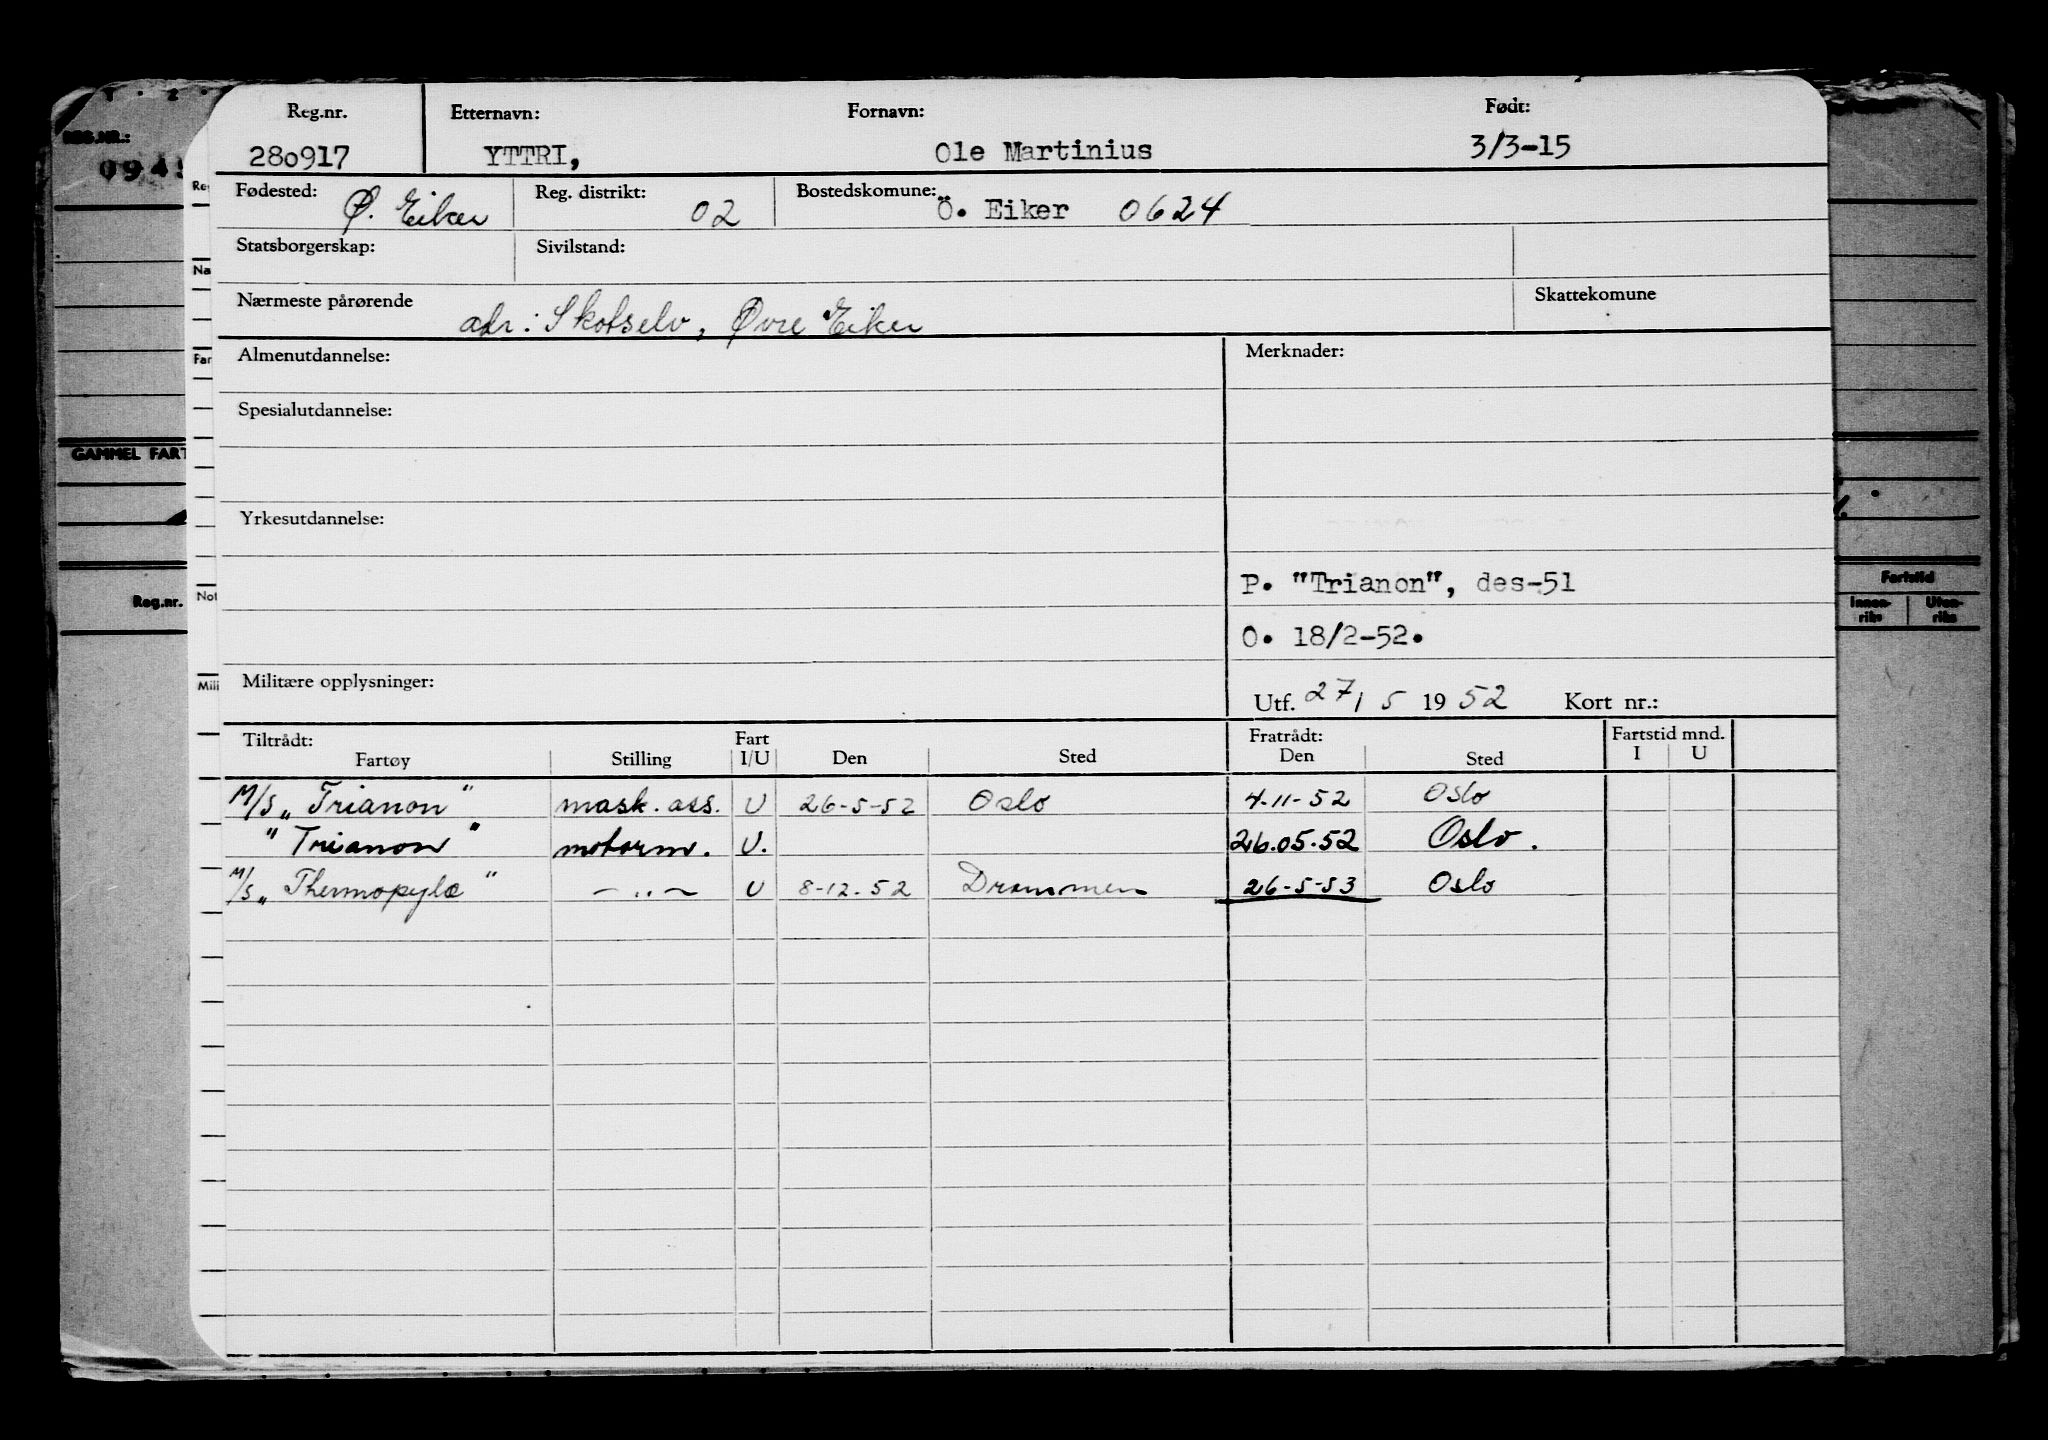 REG.NR.:
GAMMEL FART
Reg.nr.
Na
Far
Not
Mili
Fartstid
Innen-riks Uten-riks
Reg.nr. Etternavn: Fornavn: Født:
280917 YTTRI, Ole Martinius 3/3-15
Fødested: Ø. Eiker Reg. distrikt: 02 Bostedskomune: Ö. Eiker 0624
Statsborgerskap: Sivilstand:
Nærmeste pårørende Skattekomune
adr: Skotselv, Øvre Eiker
Almenutdannelse: Merknader:
Spesialutdannelse:
Yrkesutdannelse:
P. "Trianon", des-51
O. 18/2-52.
Militære opplysninger: Utf. 27/5 1952 Kort nr.:
Tiltrådt: Fart Fratrådt: Fartstid mnd.
Fartøy Stilling I/U Den Sted Den Sted I U
M/S „Trianon" mask. ass. U 26-5-52 Oslo 4-11-52 Oslo
"Trianon" motorm. U. 26.05.52 Oslo.
M/S „Thermopylæ" —„— U 8-12-52 Drammen 26-5-53 Oslo